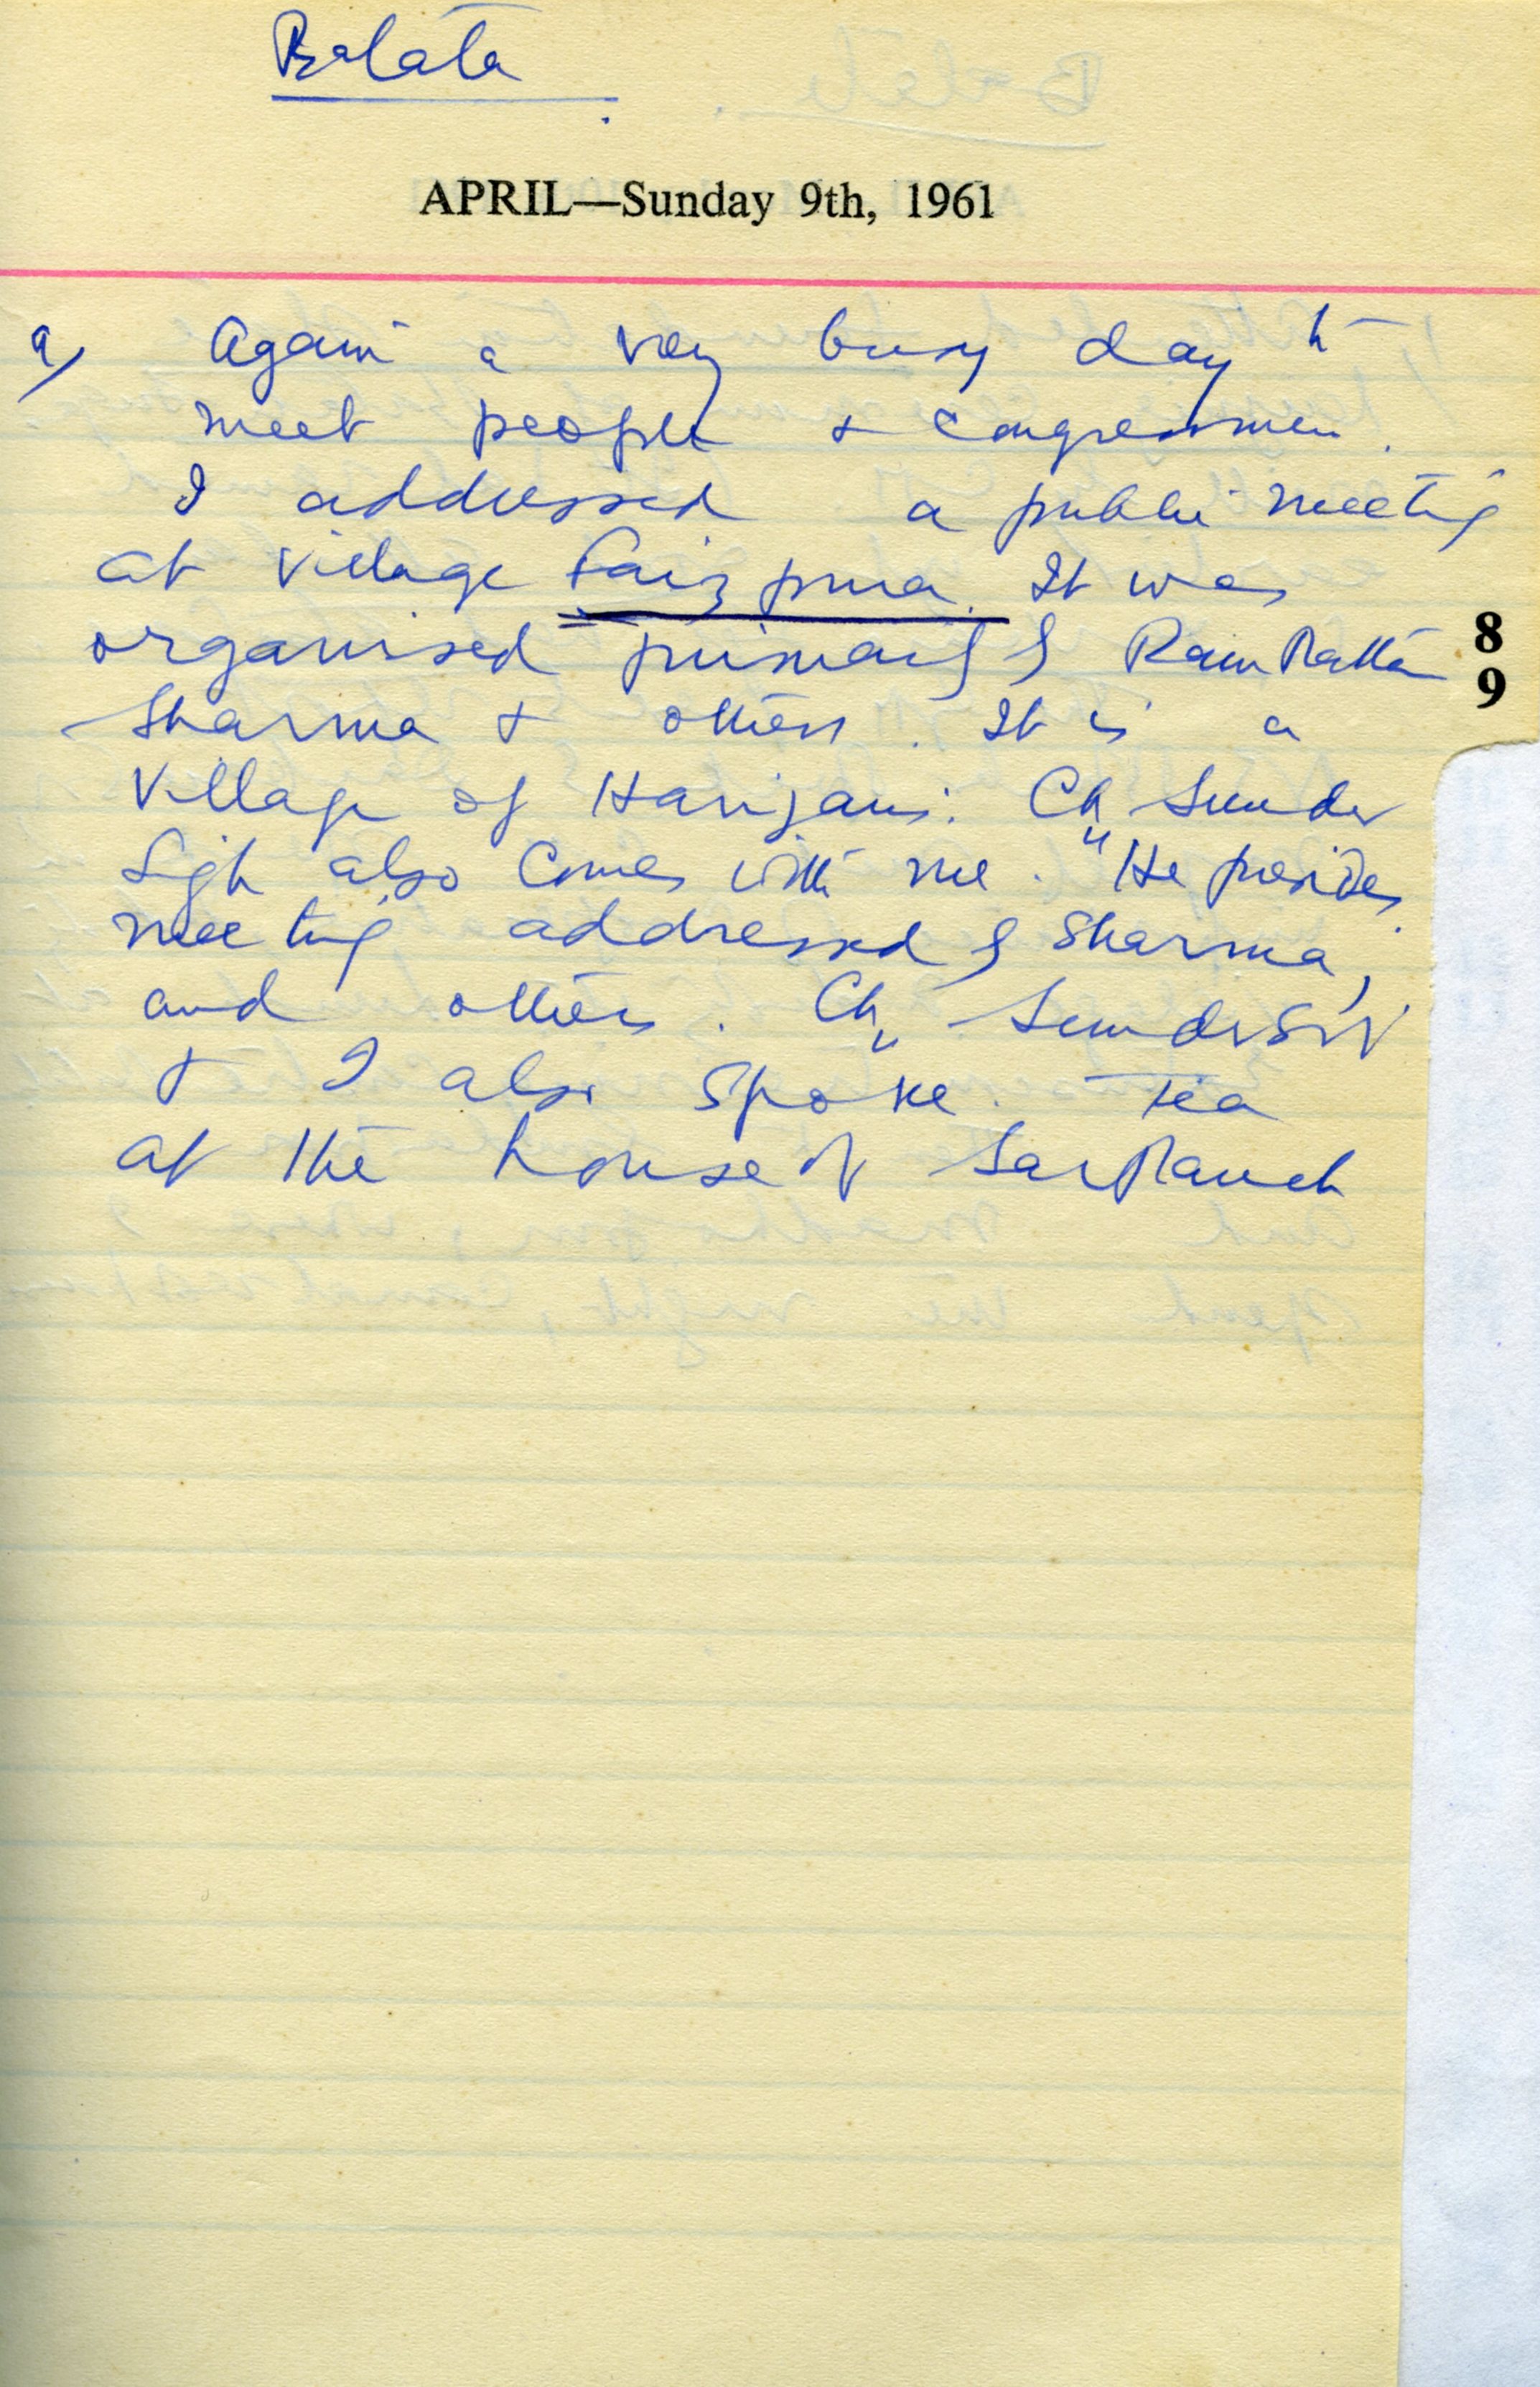 Batala
APRIL—Sunday 9th, 1961
9/ Again a very busy day to
meet people & Congressmen.
I addressed a public meeting
at village Faizpura. It was
organised primarily by Ram Rattan
Sharma & others. It is a
8
9
Village of Harijans. Ch. Sunder
Singh also comes with me. He presides
meeting addressed by Sharma,
and others. Ch. Sunder Singh
& I also spoke. Tea
at the house of Sarpanch